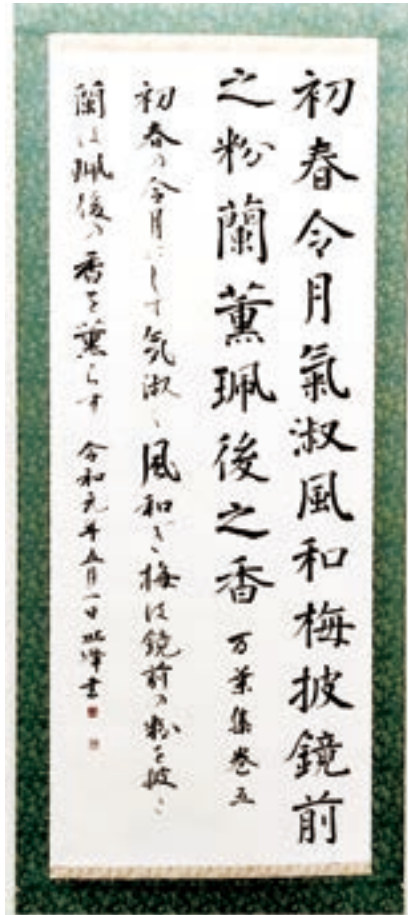 初春令月氣淑風和梅披鏡前
之粉蘭薫珮後之香 万葉集巻五
初春の令月にして気淑く風和ぎ梅は鏡前の粉を披き
蘭は珮後の香を薫らす 令和元年五月一日 書